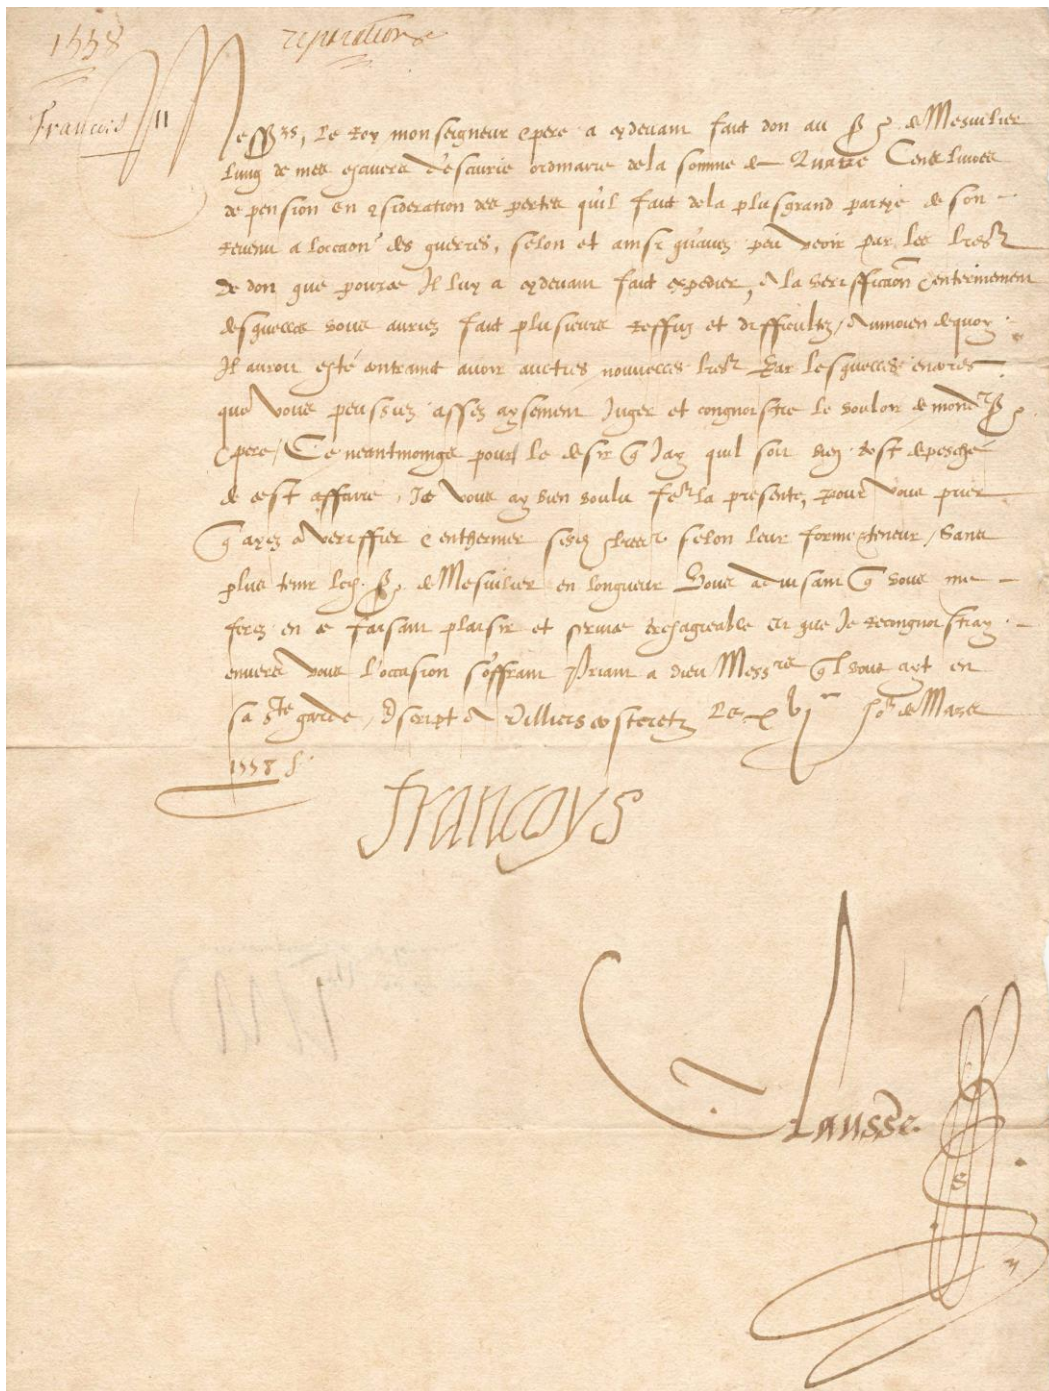 1558 reparations
Francois II
Mess.rs, Le Roy monseigneur & pere a cydevant faict don au S.r de Mesvilier
lung de mes escuiers d'escuirie ordinaire de la somme de Quatre Cens livres
de pension en 9sideration des pertes qu'il faict de la plus grand partye de son
revenu a loccaon des guerres, selon et ainsi qu'avez peu veoir par les lres
de don que pource Il luy a cydevant faict expedier, A la veriffication & enterinement
desquelles vous auriez faict plusieurs reffuz et difficultez, Au moien dequoy
Il auroit esté contrainct avoir aultres nouvelles lres Par lesquelles encores
que vous peussiez assez aysement Juger et congnoistre le vouloir de mond. S.r
& pere, Ce neantmoings pour le desir q Jay quil soit bien tost depesché
de cest affaire, Je vous ay bien voulu fe.r la presente, pour vous prier
q ayez a veriffier & entheriner sesd. lres selon leur forme & teneur, Sans
plus tenir led. S.r de Mesvilier en longueur Vous advisant q vous me
ferez en ce faisant plaisir et service tresagreable et que Je recongnoistray
envers vous l'occasion s'offrant Priant a dieu Mess.rs ql vous ayt en
sa s.te garde, Escript a Villiers costeretz Le xvj.me Jo.r de Mars
1558
Françoys
Clausse